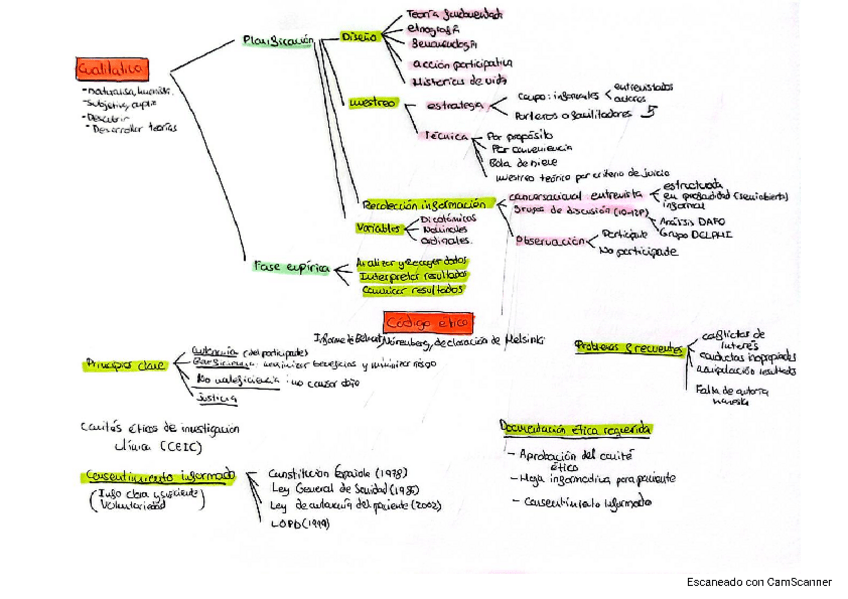 Cualitativa
- naturalista, humanist.
- Subjetiva, explic
- Describir
- Desarrollar teorías
Planificación
Diseño
Teoría fundamentada
etnografía
fenomenología
acción participativa
Historias de vida
muestreo
estrategia
Campo: informantes
entrevistados
actores
Porteros o facilitadores
Técnica
Por propósito
Por conveniencia
Bola de nieve
muestreo teórico por criterio de juicio
Recolección información
conversacional entrevista
estructurada
en profundidad (semiabierta)
informal
Grupos de discusión (10-12P)
Análisis DAFO
Grupo DELPHI
Observación
Participante
No participante
Variables
Dicotómicas
Nominales
Ordinales.
Fase empírica
Analizar y Recoger datos
Interpretar resultados
Comunicar resultados
Código ético
Informe de Belmont, Núremberg, declaración de Helsinki
Principios clave
autonomía (del participante)
Beneficencia: maximizar beneficios y minimizar riesgo
No maleficiencia: no causar daño
Justicia
Problemas frecuentes
conflictos de
interés
conductas inapropiadas
manipulación resultados
Falta de autoría
honesta
Comités éticos de investigación
clínica (CEIC)
Consentimiento informado
(Info clara y suficiente
voluntariedad)
Constitución Española (1978)
Ley General de Sanidad (1986)
Ley de autonomía del paciente (2002)
LOPD (1999)
Documentación ética requerida
- Aprobación del comité
ético
- Hoja informativa para paciente
- Consentimiento informado
Escaneado con CamScanner